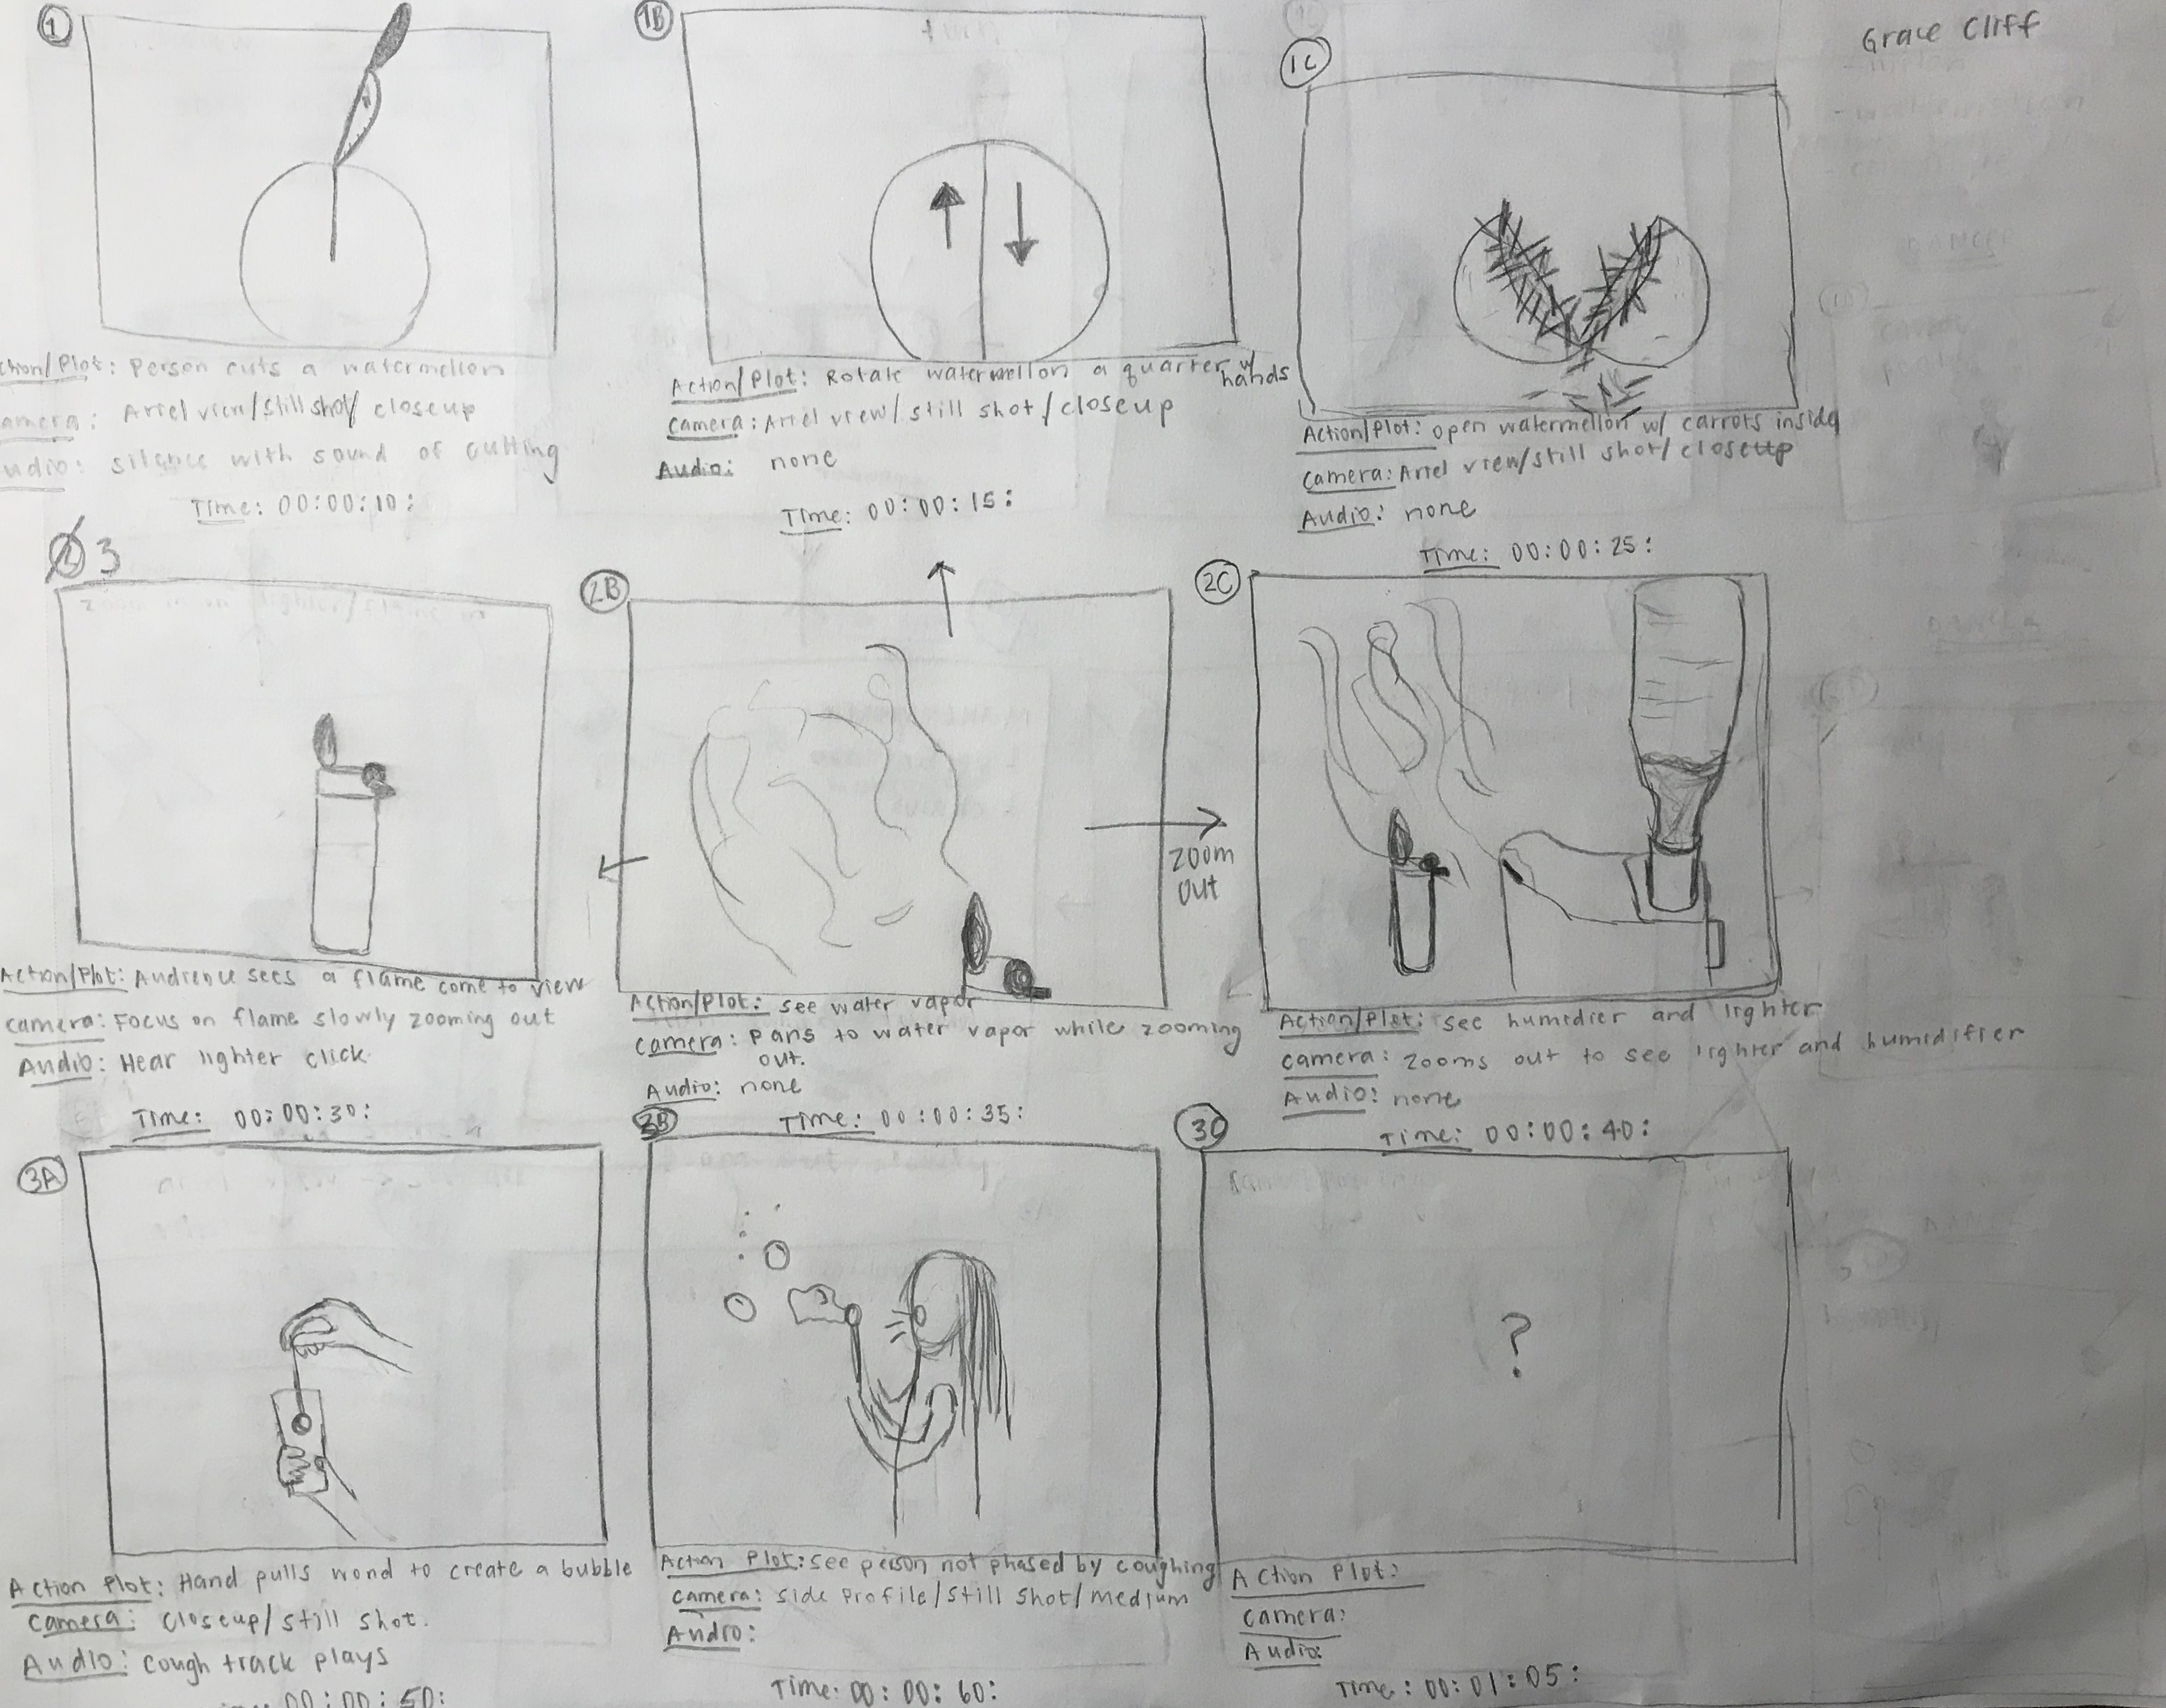 Grace Cliff
1
ction/Plot: Person cuts a watermellon
amera: Ariel view/still shot/ closeup
udio: silence with sound of cutting
Time: 00:00:10:
1B
Action/Plot: Rotate watermellon a quarter w/ hands
Camera: Ariel view/still shot/closeup
Audio: none
Time: 00:00:15:
1C
Action/Plot: open watermellon w/ carrots inside
Camera: Ariel view/still shot/closeup
Audio: none
Time: 00:00:25:
2 3
Action/Plot: Audience sees a flame come to view
Camera: Focus on flame slowly zooming out
Audio: Hear lighter click
Time: 00:00:30:
2B
zoom
out
Action/Plot: see water vapor
Camera: Pans to water vapor while zooming
out.
Audio: none
Time: 00:00:35:
2C
Action/Plot: see humidier and lighter
Camera: zooms out to see lighter and humidifier
Audio: none
Time: 00:00:40:
3A
Action Plot: Hand pulls wond to create a bubble
Camera: Closeup/still shot.
Audio: cough track plays
00:00:50:
3B
Action Plot: see person not phased by coughing
Camera: Side Profile/Still Shot/Medium
Audio:
Time: 00:00:60:
3C
?
Action Plot:
Camera:
Audio:
Time: 00:01:05: